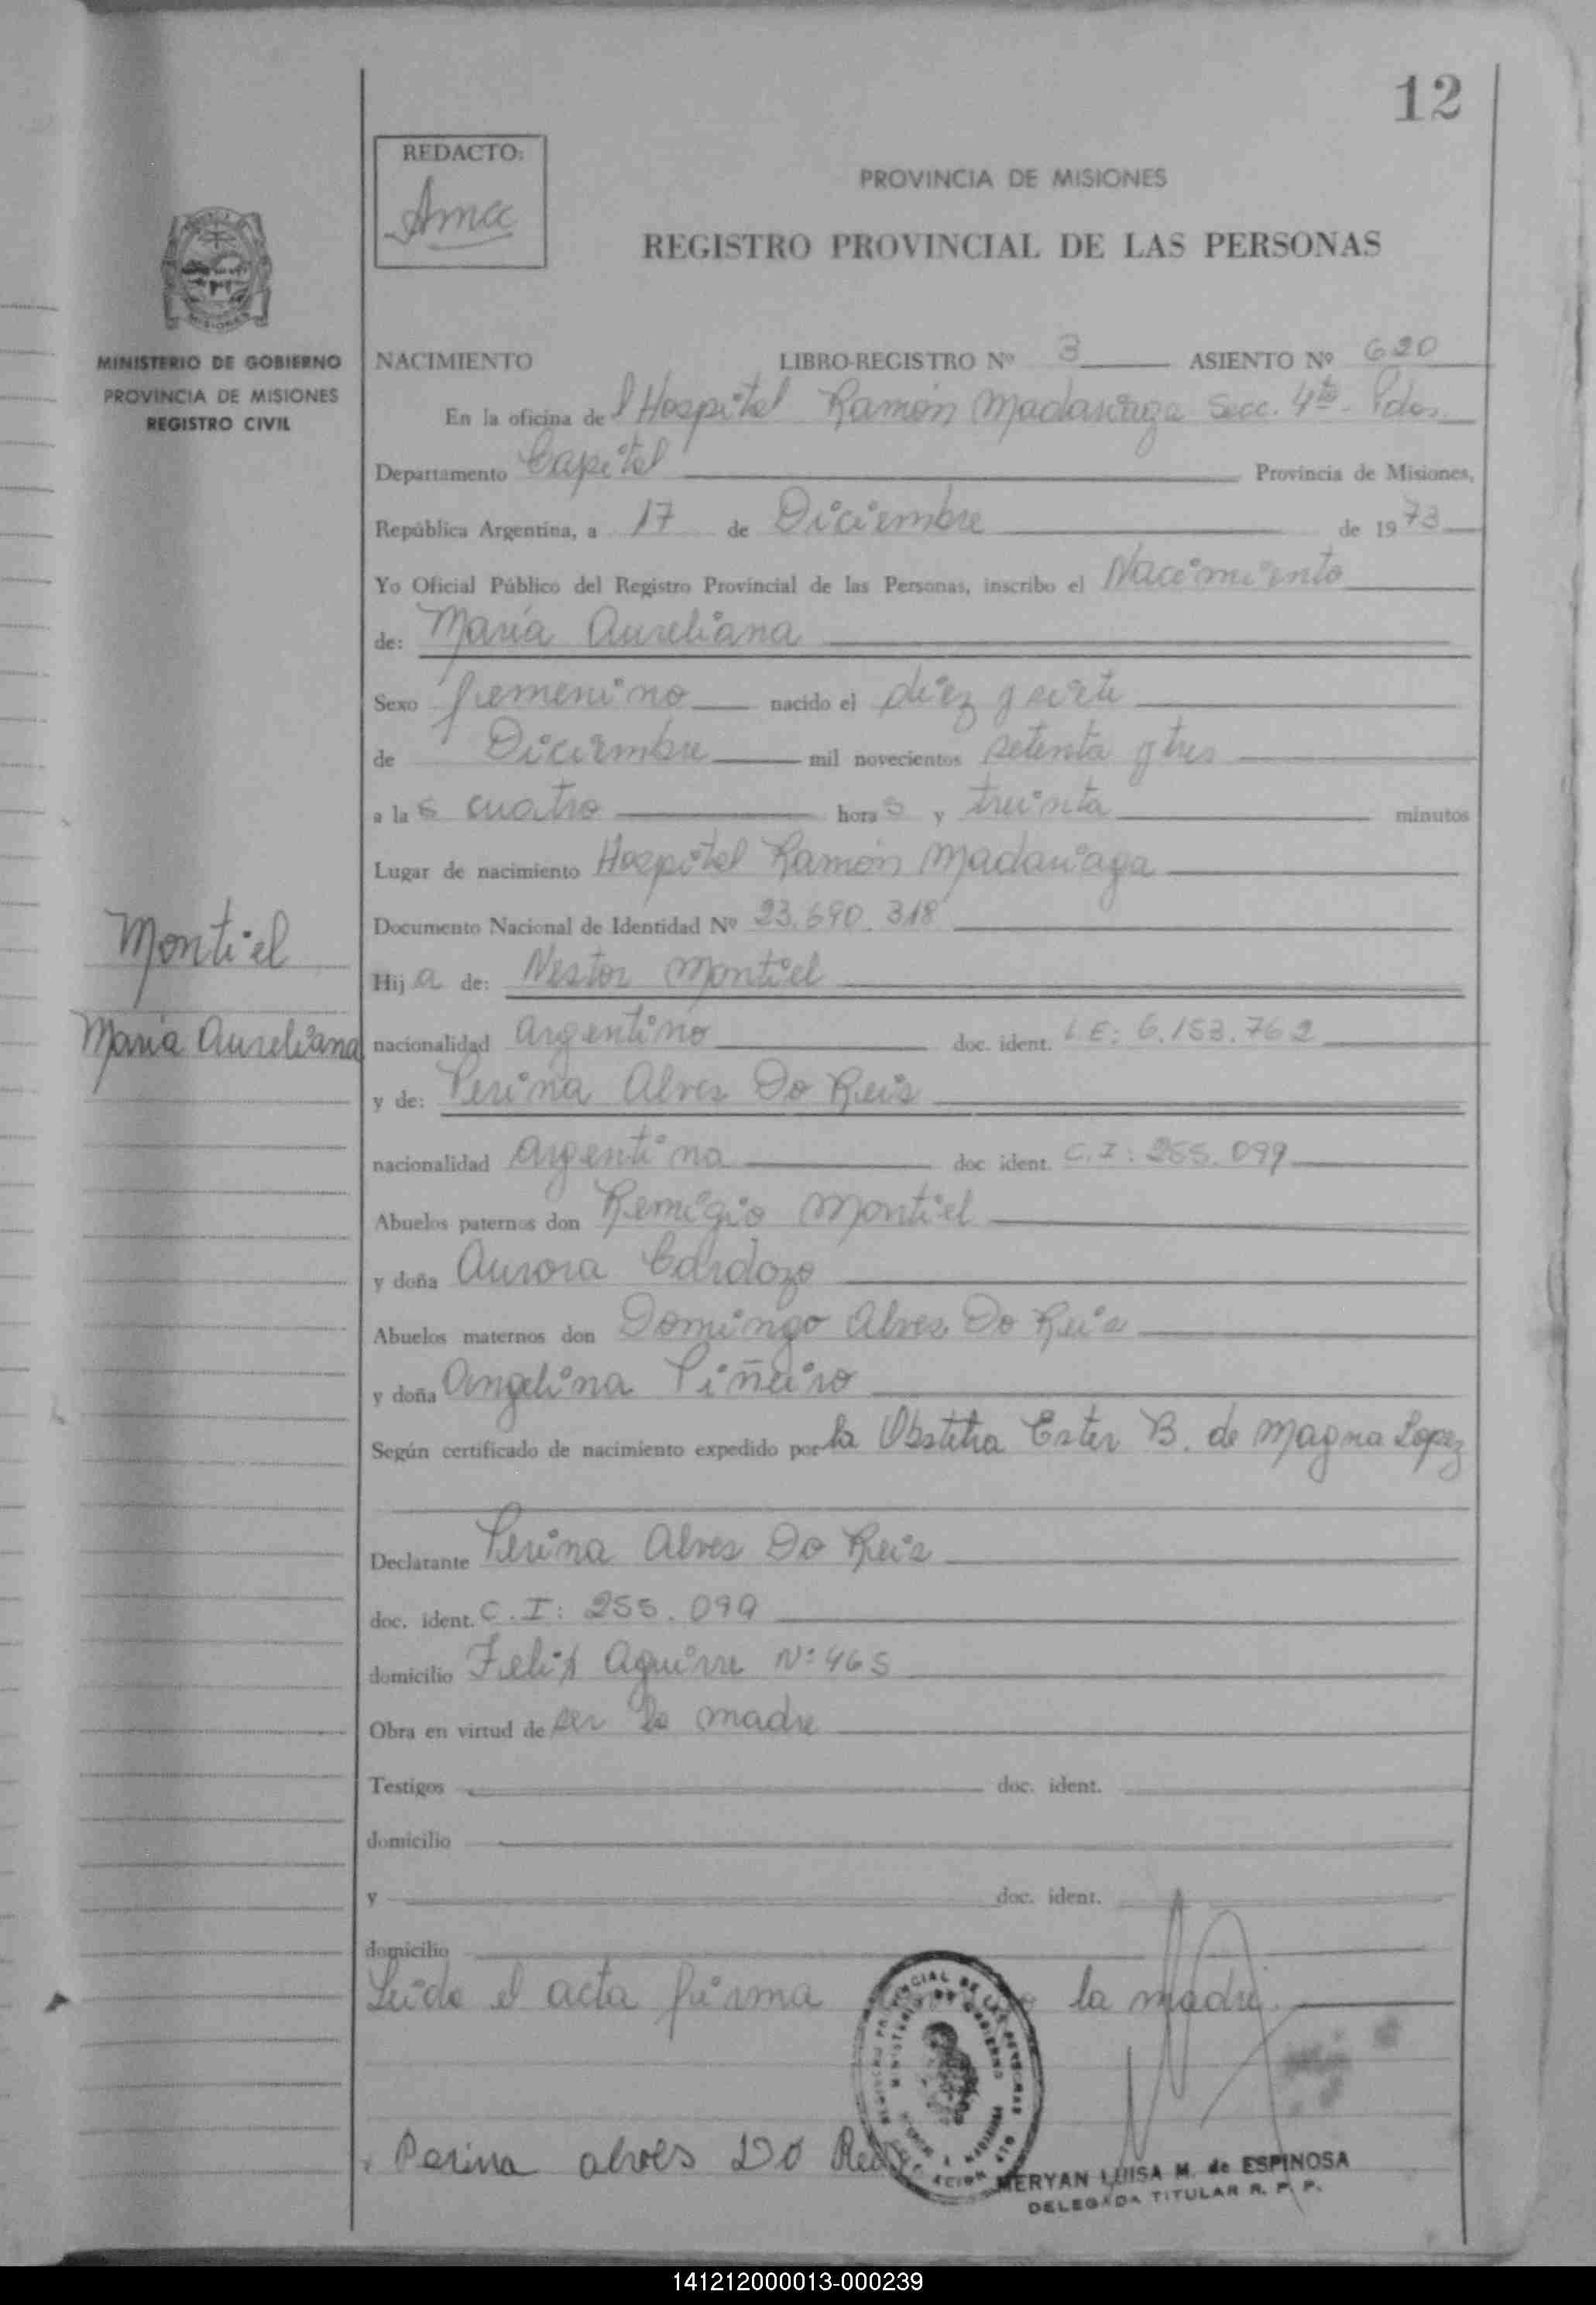 12
REDACTO:
Amcc
PROVINCIA DE MISIONES
REGISTRO PROVINCIAL DE LAS PERSONAS
MINISTERIO DE GOBIERNO
PROVINCIA DE MISIONES
REGISTRO CIVIL
NACIMIENTO LIBRO-REGISTRO Nº 3 ASIENTO Nº 620
En la oficina de l Hospital Ramón Madariaga Secc. 4ta Pdas.
Departamento Capital Provincia de Misiones,
República Argentina, a 17 de Diciembre de 1973
Yo Oficial Público del Registro Provincial de las Personas, inscribo el Nacimiento
de: María Aureliana
Sexo femenino nacido el diez y siete
de Diciembre mil novecientos setenta y tres
a las cuatro horas y treinta minutos
Lugar de nacimiento Hospital Ramón Madariaga
Documento Nacional de Identidad Nº 23.690.318
Montiel
María Aureliana
Hija de: Nestor Montiel
nacionalidad argentino doc. ident. L.E: 6.153.762
y de: Perina Alves Do Reis
nacionalidad argentina doc ident. C.I: 255.099
Abuelos paternos don Remigio Montiel
y doña Aurora Cardozo
Abuelos maternos don Domingo Alves Do Reis
y doña Angelina Piñeiro
Según certificado de nacimiento expedido por la Obstetra Ester B. de Magna Lopez
Declarante Perina Alves Do Reis
doc. ident. C.I: 255.099
domicilio Felix Aguirre Nº 465
Obra en virtud de ser la madre
Testigos doc. ident.
domicilio
y doc. ident.
domicilio
Leida el acta firma la madre.
Perina alves Do Reis
MERYAN LUISA M. de ESPINOSA
DELEGADA TITULAR R. P. P.
141212000013-000239